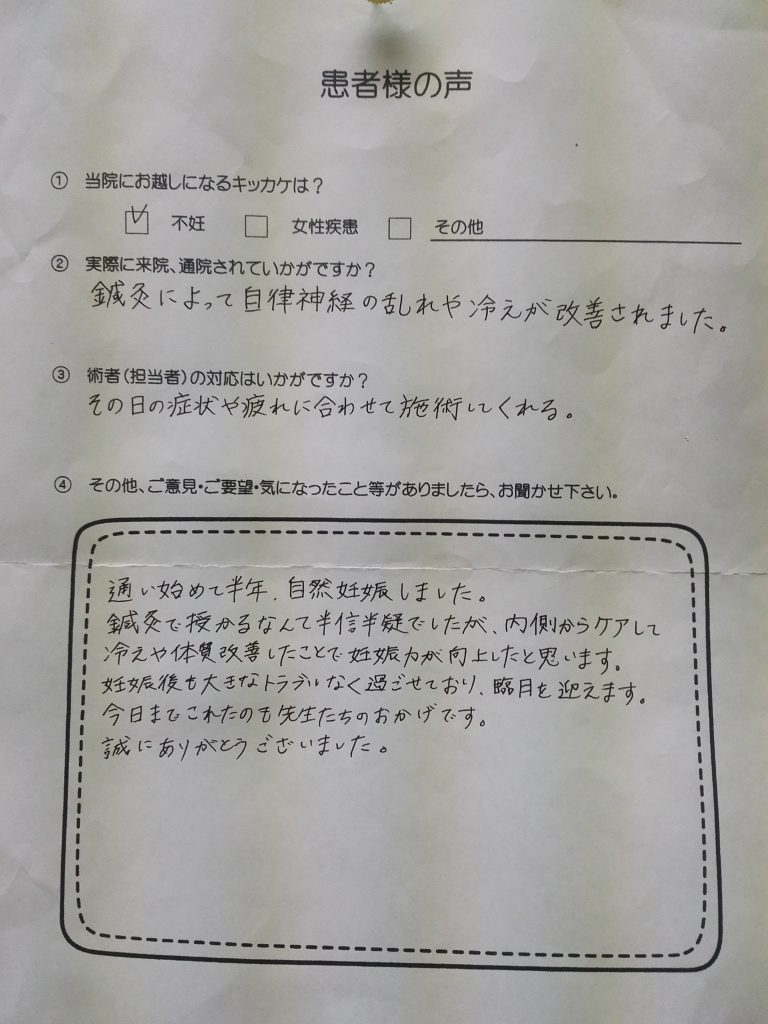 患者様の声
① 当院にお越しになるキッカケは？
不妊 女性疾患 その他
② 実際に来院、通院されていかがですか？
鍼灸によって自律神経の乱れや冷えが改善されました。
③ 術者(担当者)の対応はいかがですか？
その日の症状や疲れに合わせて施術してくれる。
④ その他、ご意見・ご要望・気になったこと等がありましたら、お聞かせ下さい。
通い始めて半年、自然妊娠しました。
鍼灸で授かるなんて半信半疑でしたが、内側からケアして
冷えや体質改善したことで妊娠力が向上したと思います。
妊娠後も大きなトラブルなく過ごせており、臨月を迎えます。
今日までこれたのも先生たちのおかげです。
誠にありがとうございました。